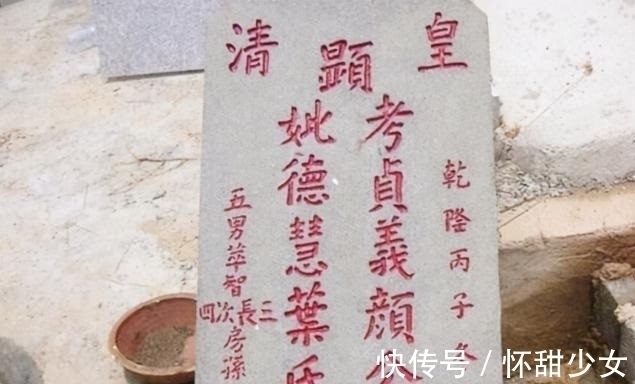 皇清
顯
乾隆丙子
考貞義顔公
妣德慧葉氏
五男萃智
三長次四
房孫
快传号 / 怀甜少女